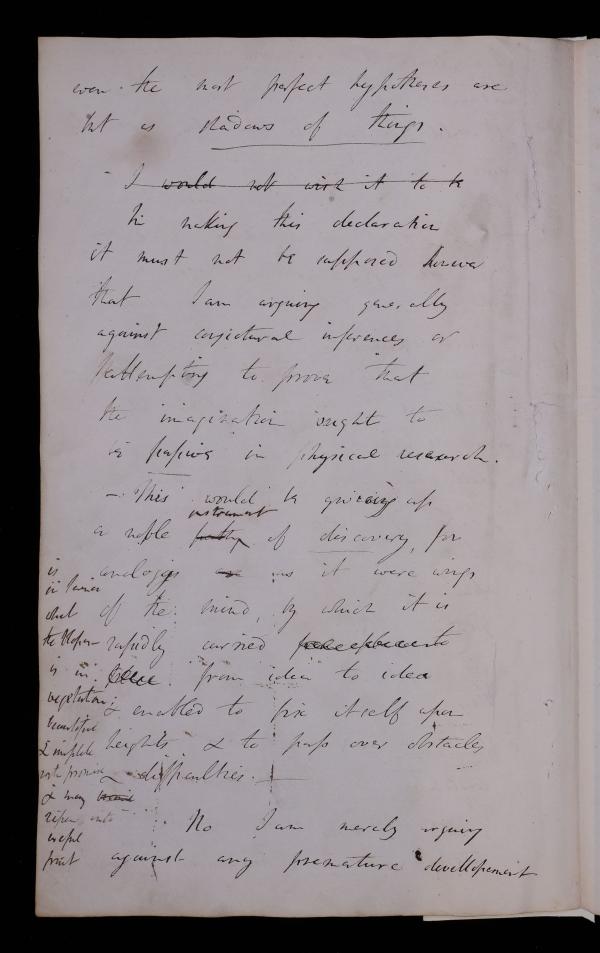 even the most perfect hypotheses are
but as shadows of things.
I would not wish it to be
In making this declaration
it must not be supposed however
that I am arguing generally
against conjectural inferences or
attempting to prove that
the imagination ought to
be passive in physical research.
— This would be giving up
instrument
a noble of discovery, for
analogies are as it were wings
of the mind, by which it is
rapidly carried
from idea to idea
& enabled to fix itself upon
heights & to pass over obstacles
& difficulties. —
No I am merely arguing
against any premature developement
is
in
what
the blossom
is in
vegetation;
beautiful
&
with promise
& may
ripen into
useful
fruit